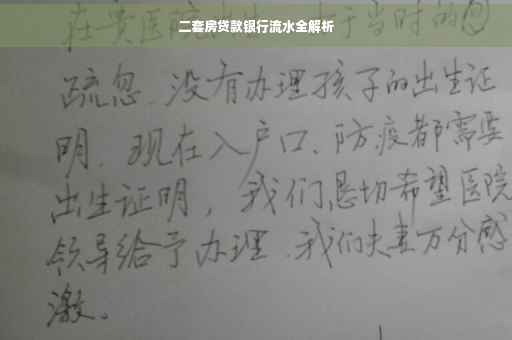 二套房贷款银行流水全解析
在贵医院于当时的
疏忽、没有办理孩子的出生证
明、现在入户口、防疫都需要
出生证明,我们恳切希望医院
领导给予办理、我们夫妻万分感
激。